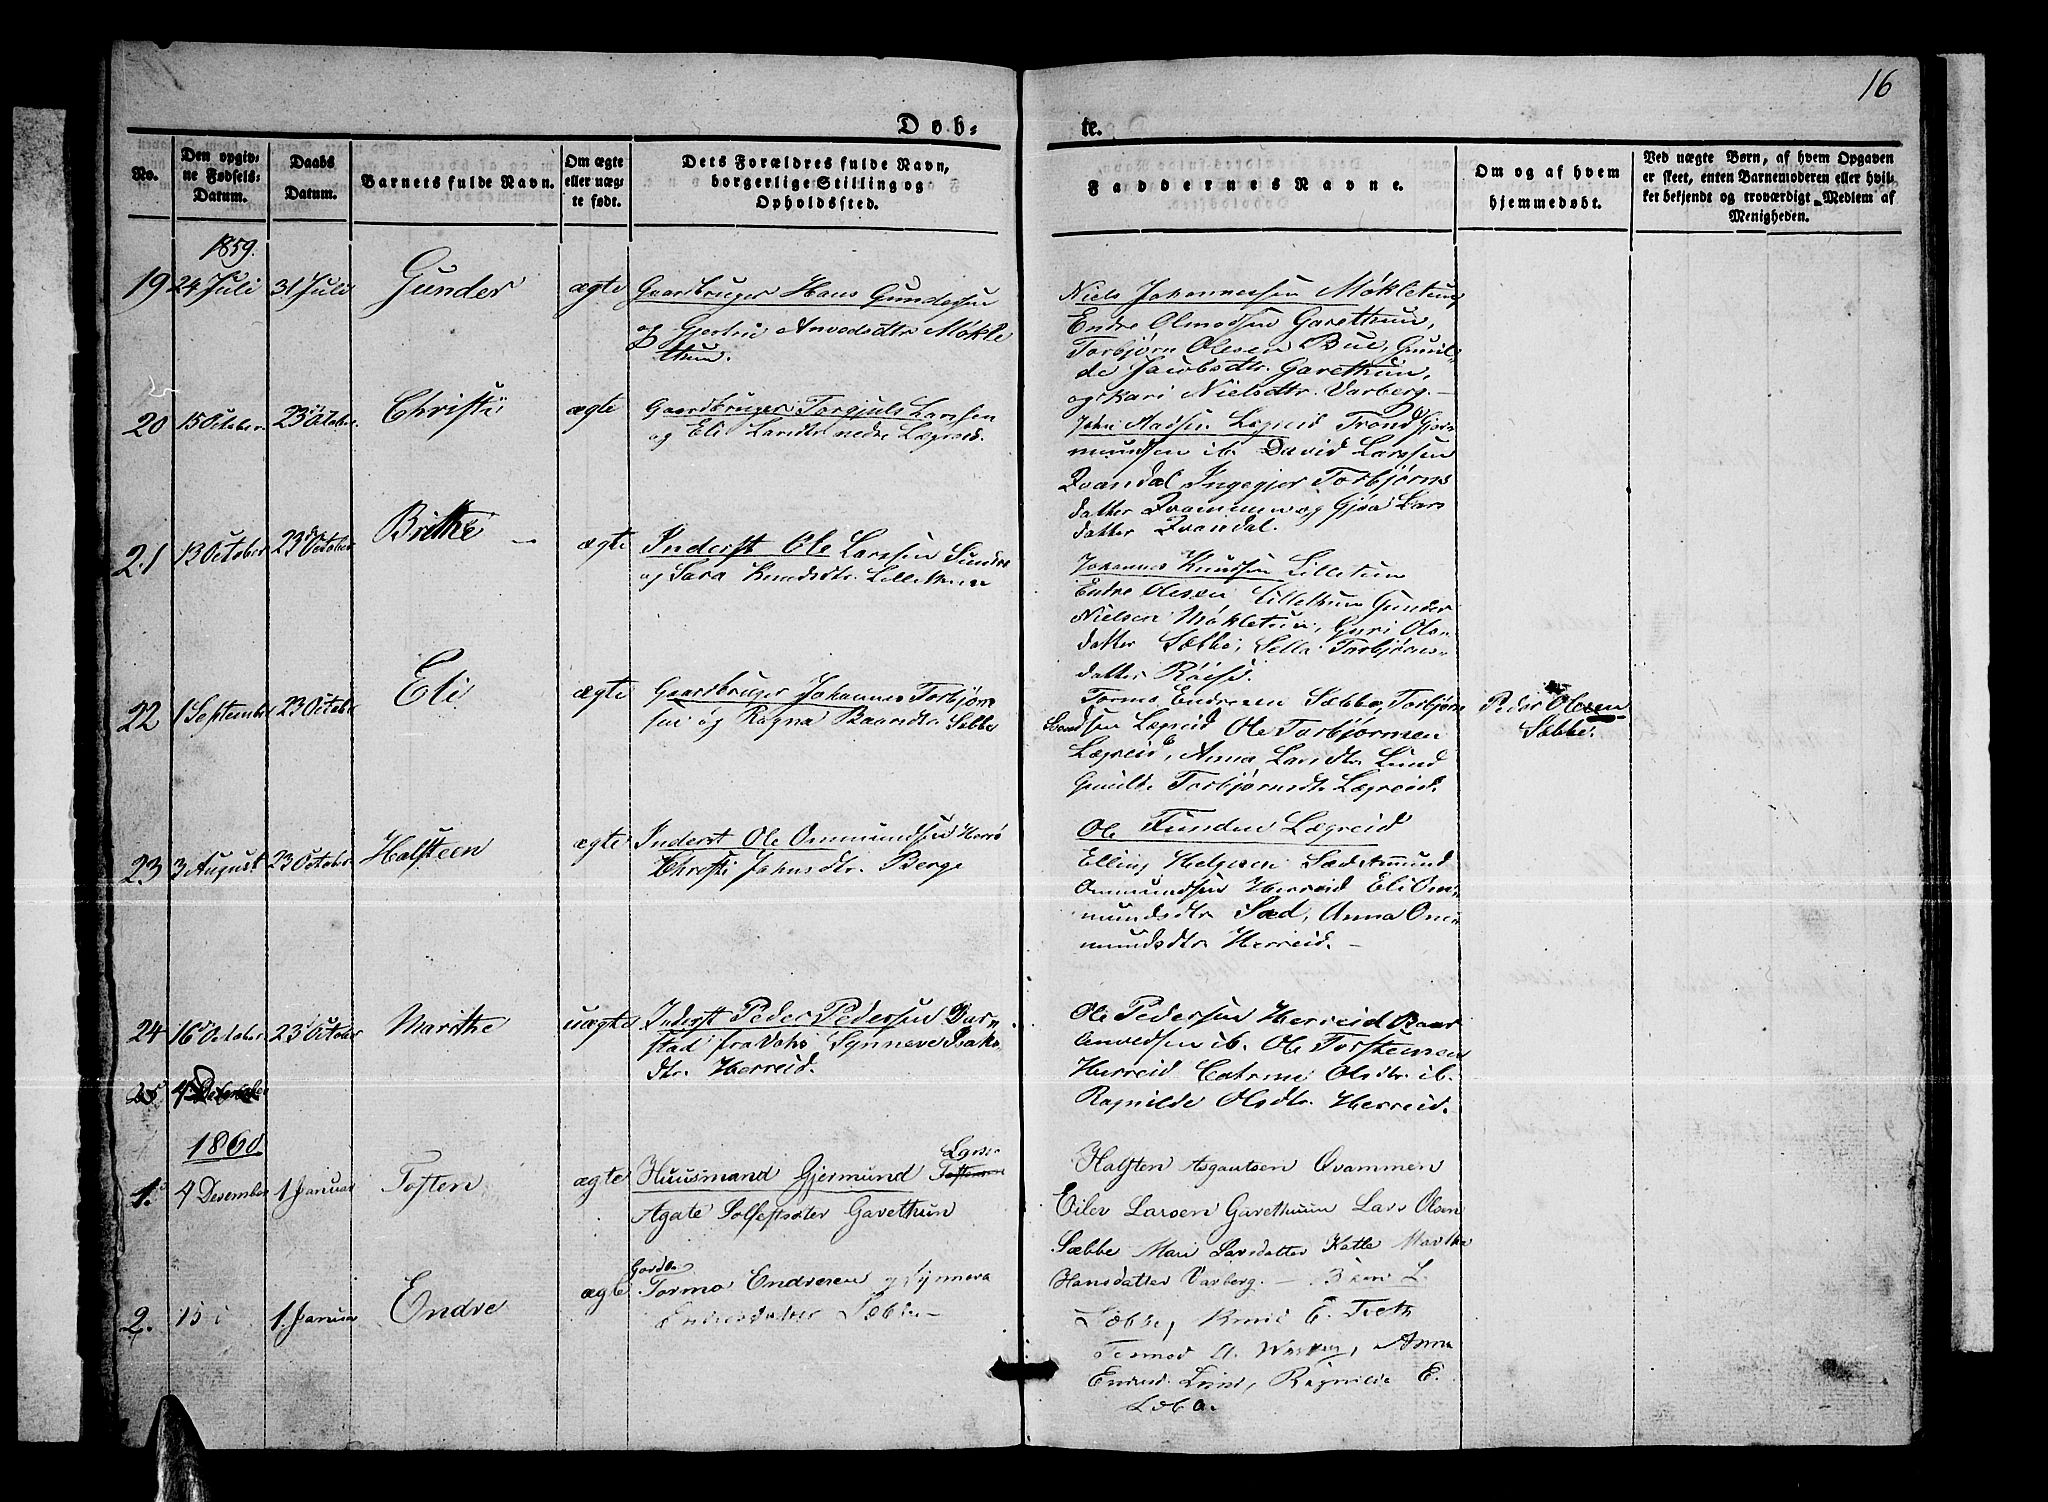 16
Døb-
te.
No.
Den opgiv-
ne Fødsels-
Datum.
Daabs
Datum.
Barnets fulde Navn.
Om ægte
eller uæg-
te født.
Dets Forældres fulde Navn,
borgerlige Stilling og
Opholdssted.
Faddernes Navne.
Om og af hvem
hjemmedøbt.
Ved uægte Børn, af hvem Opgaven
er skeet, enten Barnemoderen eller hvil-
ket bekjendt og troværdigt Medlem af
Menigheden.
1859.
19 24 Juli 31 Juli Gunder ægte Gaardbruger Hans Gundersen
og Anvedsdtr Møkle
thun.
Niels Johannessen Møkletun
Endre Olmodsen Garethun,
Torbjørn Olesen Bue, Gunil-
de Jacobsdtr. Garethun,
og Kari Nielsdtr. Varberg.
20 15 October 23 October Christi ægte Gaardbruger Torgjuls Larssen
og Eli Larsdtr nedre Lægreid.
John Lægreid Trond Gjer-
mundsen ib. David Larssen
Qvandal Ingegjer Torbjørns
datter Qvammen og Gjøa Lars
datter Qvandal.
21 13 October 23 October Brithe ægte Inderst Ole Larssen
og Sara Knudsdtr. Lillethun
Johannes Knudsen Lilletun
Endre Olesen Lillethun Gunder
Nielsen Møkletun, Guri Ols-
datter Sæbbe, Sella Torbjørns-
datter
22 1 September 23 October Eli ægte Gaardbruger Johannes Torbjørn
sen og Ragna Baardsdtr. Sæbbe
Tormo Endresen Sæbbe, Torbjørn
sen Lægreid Ole Torbjørnsen
Lægreid, Anna Larsdtr Lund
Gunilde Torbjørnsdtr Lægreid.
Peder Olsen
Sæbbe.
23 3 August 23 October Halsteen ægte Inderst Ole Ommundsen
Christi Johnsdtr. Berge
Ole Lægreid
Elling Helgesen Sæd
Ommundsen Herreid Eli Om-
mundsdtr Sæd, Anna Om-
mundsdtr Herreid. —
24 16 October 23 October Marithe uægte Inderst Peder Pedersen
stad fra Synneve Isaks-
dtr. Herreid.
Ole Pedersen Herreid Baar
Anvedsen ib. Ole Torsteinsen
Herreid Catrine Olsdtr. ib.
Ragnilde Olsdtr. Herreid.
25 4 December
1860.
1. 4 Desember 1 Januar Tosten ægte Huusmand Gjermund Larsen
Agate Solfestsdter Garethun
Halsten Asgautsen Qvammen
Eilev Larsen Garethuun Lars Olsen
Sæbbe Mari Larsdatter Martha
Hansdatter Varberg. —
2. 15 1. Januar Endre ægte Tormo Endresen og Synneva
Endresdatter Sæbbe —
Sæbbe, E.
Tormod Anna
Endresd. Lund, Ragnilda E.
Sæbø.